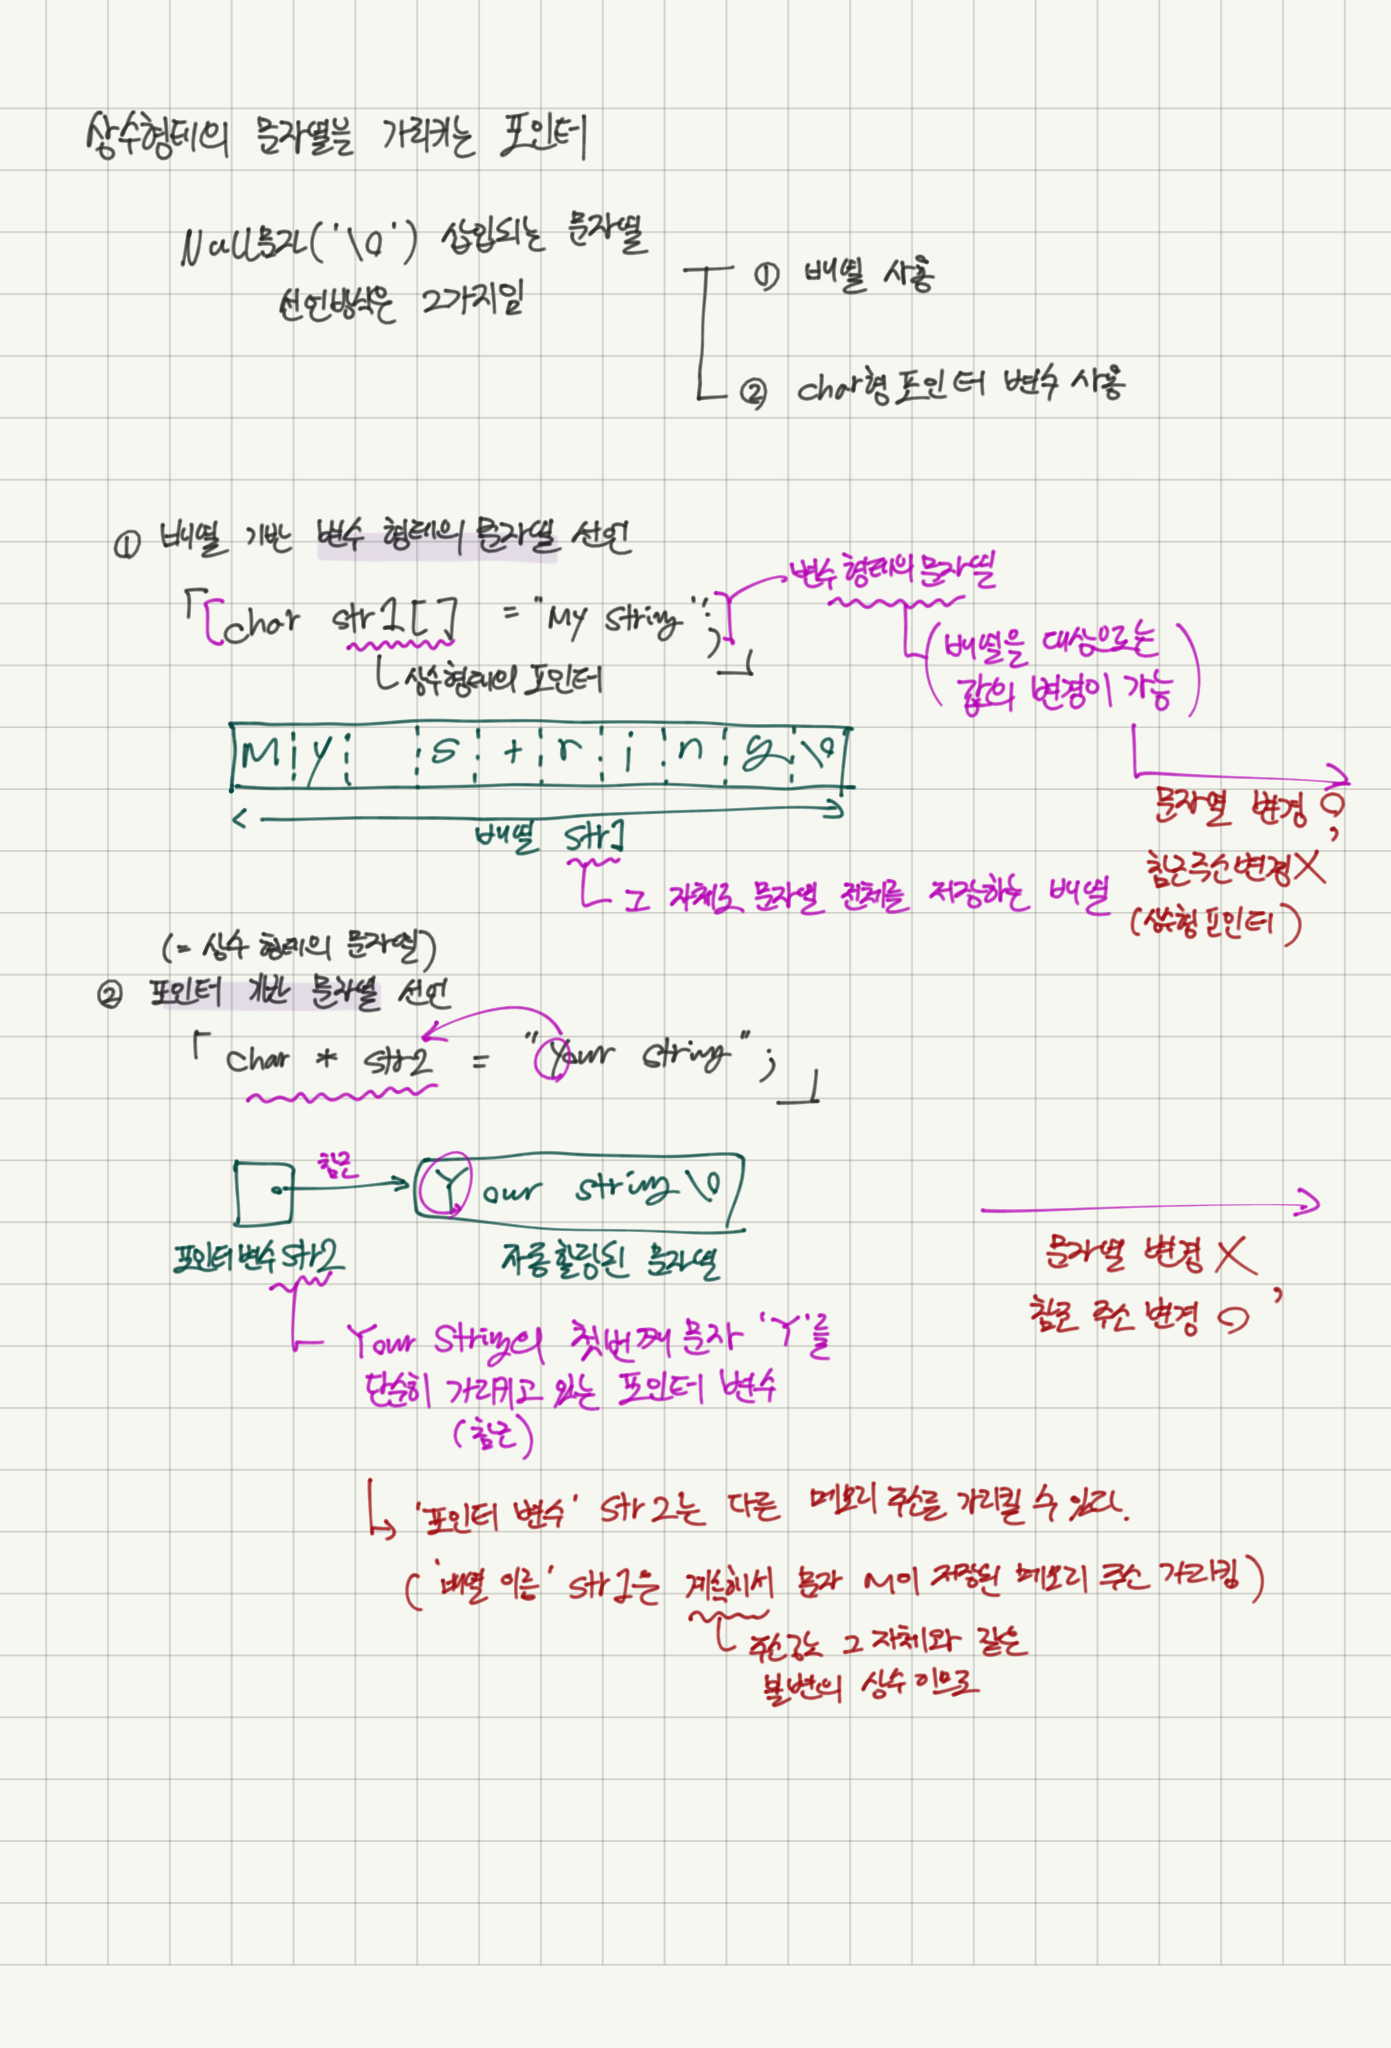 상수형태의 문자열을 가리키는 포인터
Null문자('\0') 삽입되는 문자열
선언방식은 2가지임
① 배열 사용
② char형 포인터 변수 사용
① 배열 기반 변수 형태의 문자열 선언
「char str1[] = "My string";」
변수 형태의 문자열
(배열을 대상으로는
값의 변경이 가능)
상수형태의 포인터
My string\0
배열 str1
문자열 변경 O,
참조주소변경 X
(상수형 포인터)
그 자체로 문자열 전체를 저장하는 배열
(= 상수 형태의 문자열)
② 포인터 기반 문자열 선언
「char * str2 = "Your string";」
참조
Your string\0
포인터 변수 str2
자동할당된 문자열
문자열 변경 X,
참조 주소 변경 O
Your String의 첫번째 문자 'Y'를
단순히 가리키고 있는 포인터 변수
(참조)
'포인터 변수' str2는 다른 메모리 주소를 가리킬 수 있다.
('배열 이름' str1은 계속해서 문자 M이 저장된 메모리 주소 가리킴)
주소값은 그 자체와 같은
불변의 상수이므로